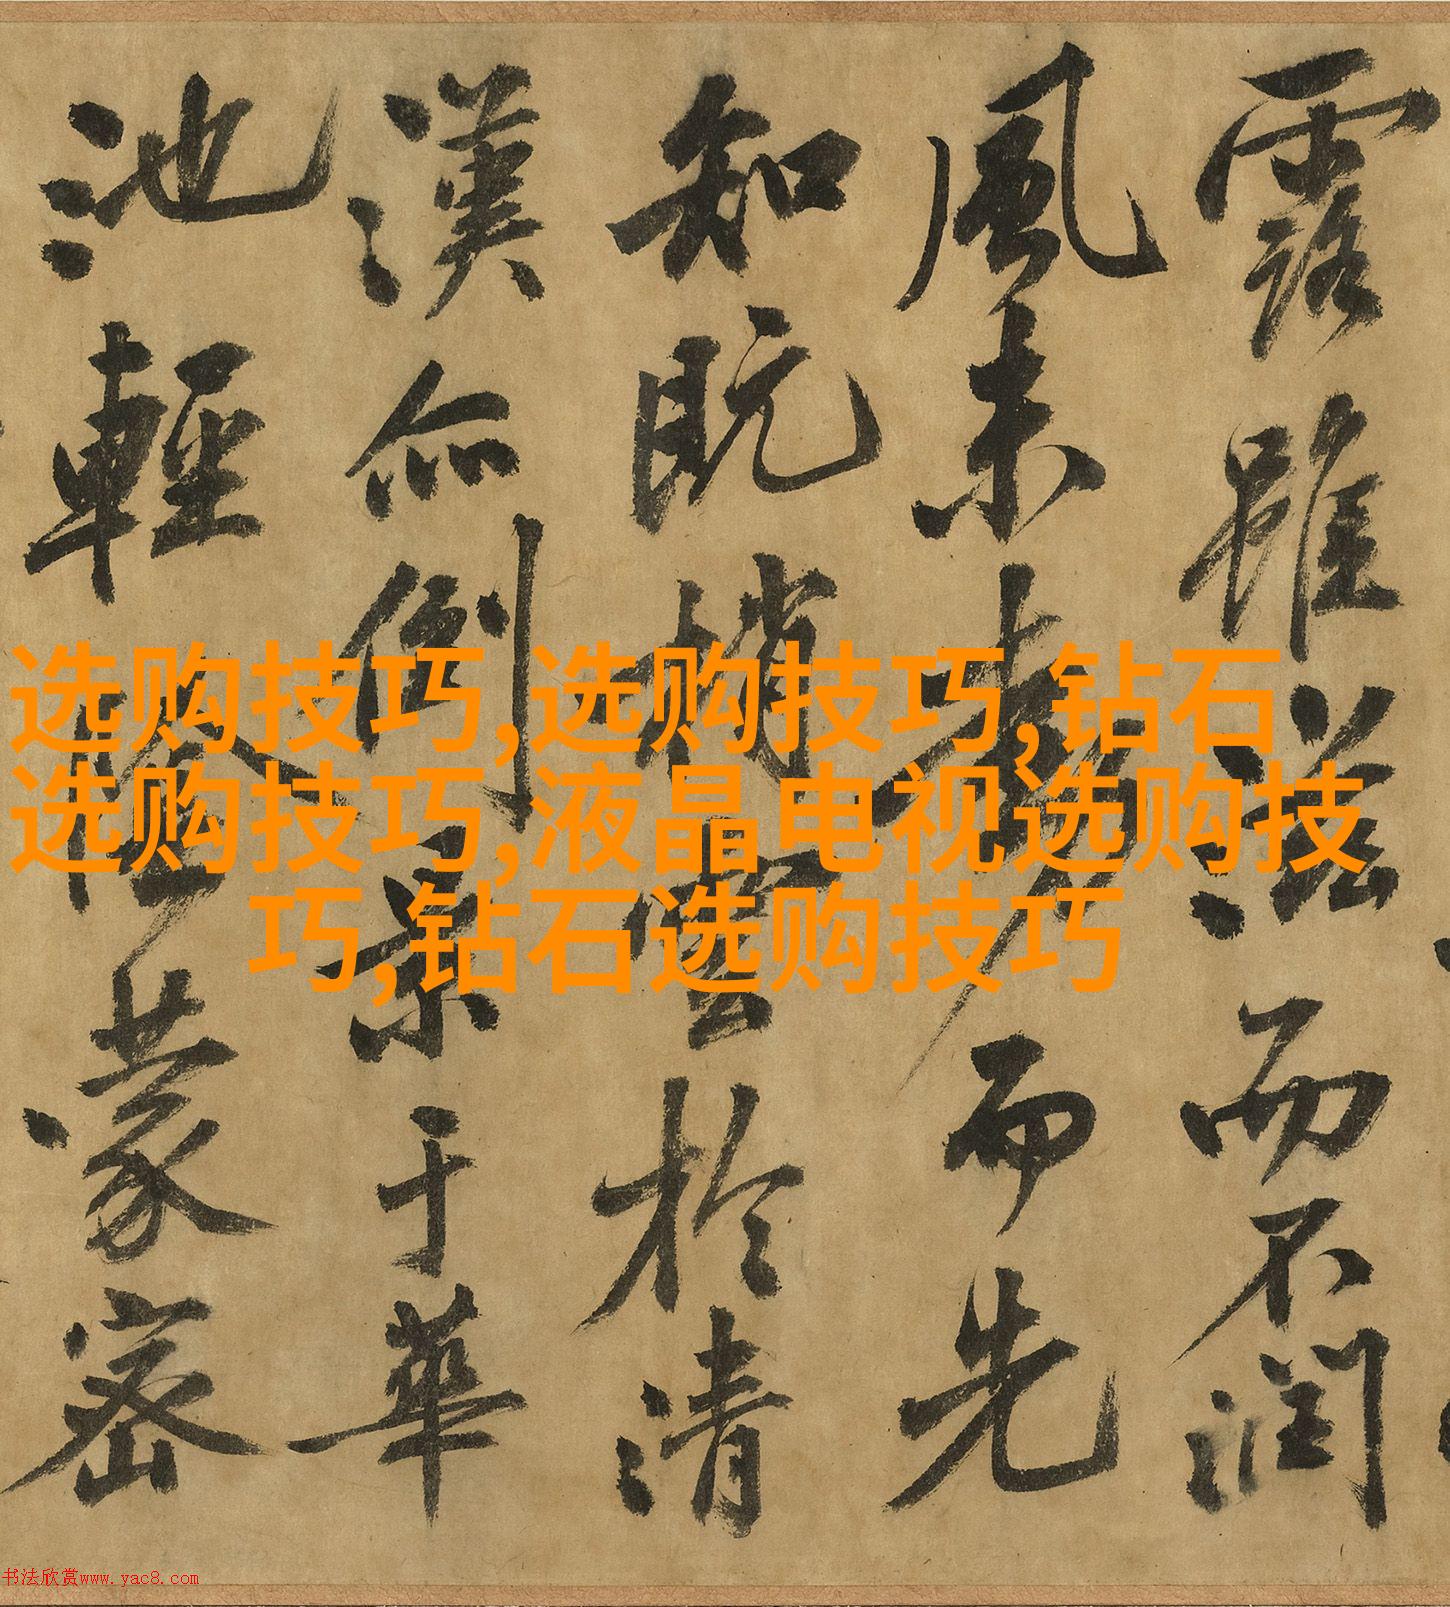 露雖滋而不潤
風未而先
知既梢雲於清
漢亦倒景于華
池輕陰蒙密
选购技巧,选购技巧,钻石
选购技巧,液晶电视选购技
巧,钻石选购技巧
书法欣赏www.yac8.com